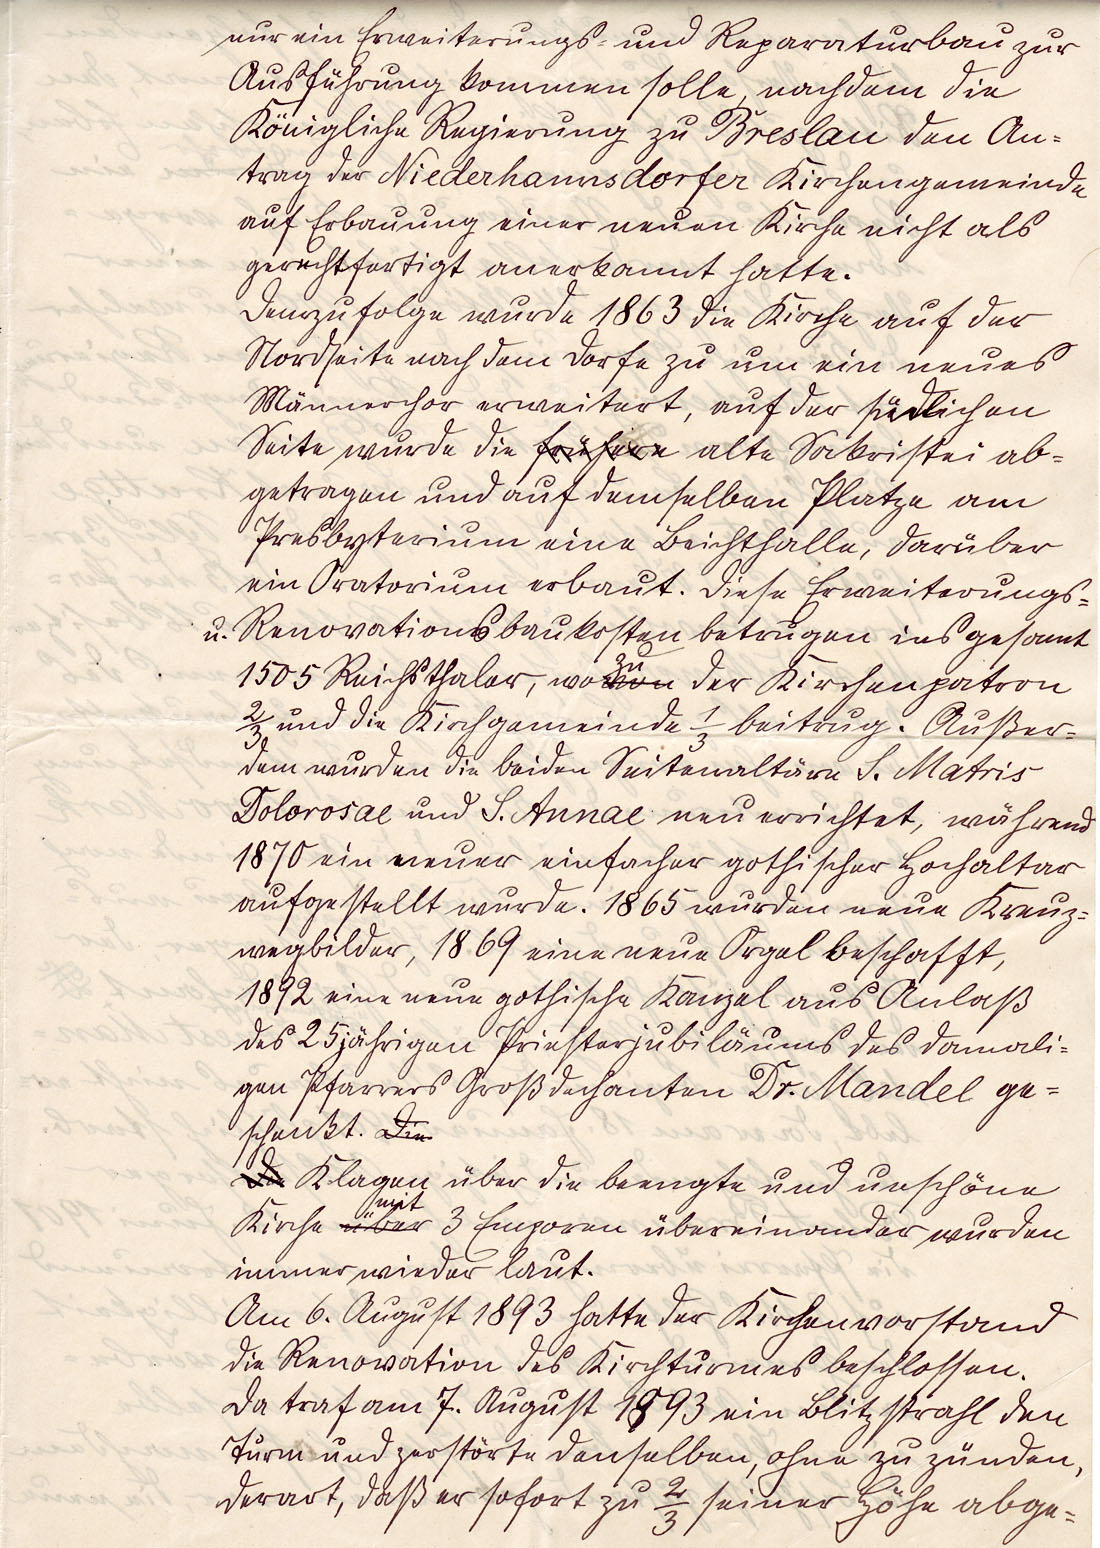 nur ein Erweiterungs- und Reparaturbau zur
Ausführung kommen solle, nachdem die
Königliche Regierung zu Breslau den An-
trag der Niederhannsdorfer Kirchengemeinde
auf Erbauung einer neuen Kirche nicht als
gerechtfertigt anerkannt hatte.
Demzufolge wurde 1863 die Kirche auf der
Nordseite nach dem Dorfe zu um ein neues
Männerchor erweitert, auf der südlichen
Seite wurde die frühere alte Sakristei ab-
getragen und auf demselben Platze am
Presbyterium eine Beichthalle, darüber
ein Oratorium erbaut. Diese Erweiterungs-
u. Renovationsbaukosten betrugen insgesamt
1505 Reichsthaler, wozu der Kirchenpatron
2/3 und die Kirchgemeinde 1/3 beitrug. Außer-
dem wurden die beiden Seitenaltäre S. Matris
Dolorosae und S. Annae neu errichtet, während
1870 ein neuer einfacher gothischer Hochaltar
aufgestellt wurde. 1865 wurden neue Kreuz-
wegbilder, 1869 eine neue Orgel beschafft,
1892 eine neue gothische Kanzel aus Anlaß
des 25jährigen Priesterjubiläums des damali-
gen Pfarrers Großdechanten Dr. Mandel ge-
schenkt. Die
Die Klagen über die beengte und unschöne
Kirche über mit 3 Emporen übereinander wurden
immer wieder laut.
Am 6. August 1893 hatte der Kirchenvorstand
die Renovation des Kirchturmes beschlossen.
Da traf am 7. August 1893 ein Blitzstrahl den
Turm und zerstörte denselben, ohne zu zünden,
derart, daß er sofort zu 2/3 seiner Höhe abge-